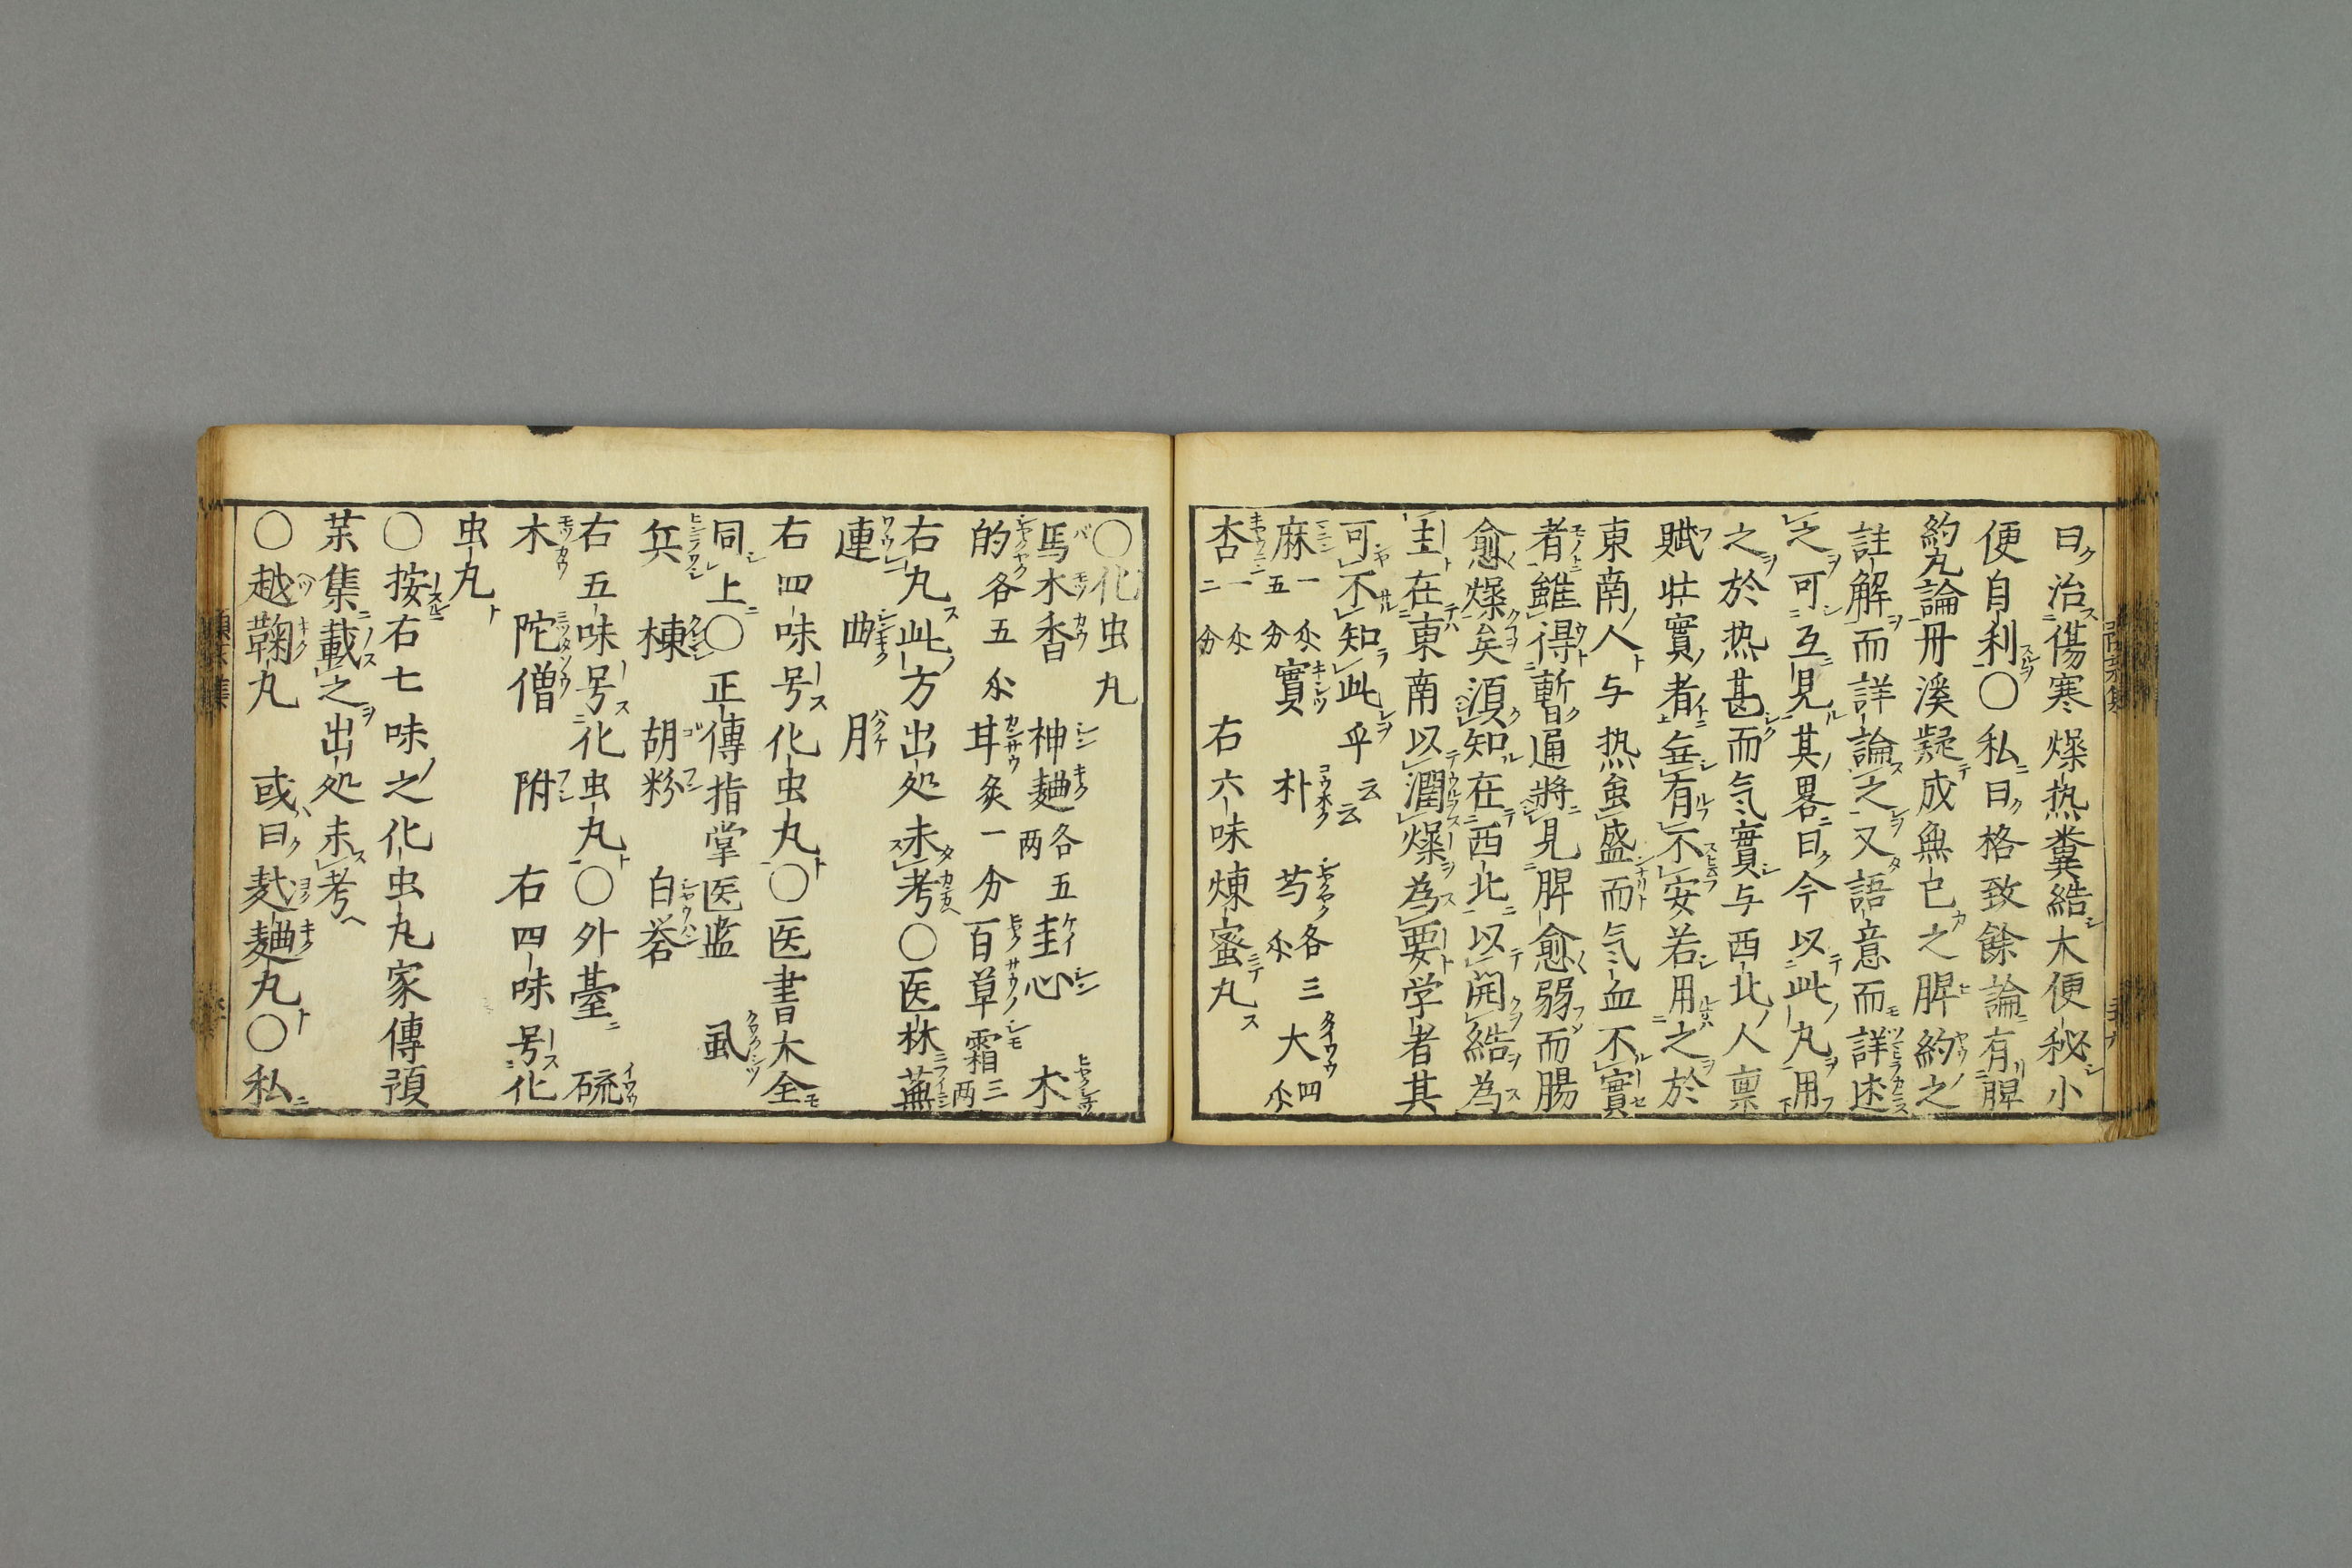 曰治傷寒燥热糞結大便秘小
便自利〇私曰格致餘論有脾
約丸論丹溪疑成無已之脾約之
註解而詳論之又語意而詳述
之可互見其畧曰今以此丸用
之於热甚而気實与西北人禀
賦壮實者無有不安若用之於
東南人与热虽盛而気血不實
者雖得暫通將見脾愈弱而腸
愈燥矣須知在西北以開結為
主在東南以潤燥為要学者其
可不知此乎云云
麻一分五分 實 朴 芍各三分 大四分
杏一分二分 右六味煉蜜丸
〇化虫丸
馬木香 神麯各五两 圭心 木
的各五分 甘炙一分 百草霜三两
右丸此方出処未考〇医林蕪
連 曲 月
右四味号化虫丸〇医書大全
同上〇正傳指掌医鑑 虱
兵 楝 胡粉 白礬
右五味号化虫丸〇外臺 硫
木 陀僧 附 右四味号化
虫丸
〇按右七味之化虫丸家傳預
茱集載之出処未考
〇越鞠丸 或曰麩麯丸〇私